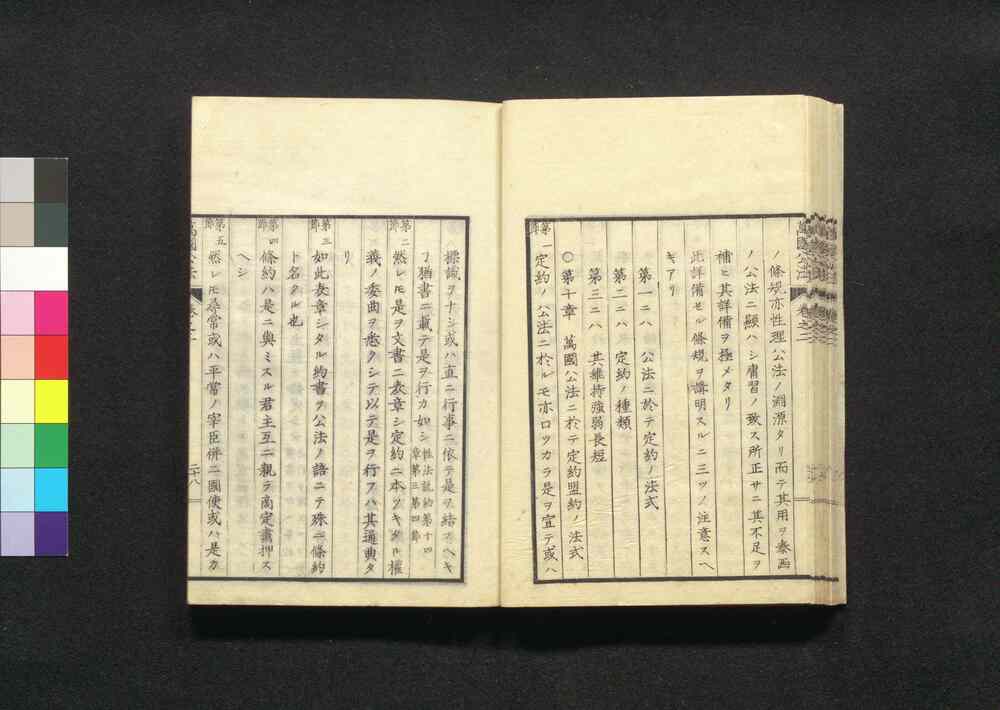 萬國公法 卷之二
ノ條規亦性理公法ノ淵源タリ而テ其用ヲ泰西
ノ公法ニ顯ハシ庸習ノ致ス所正サニ其不足ヲ
補ヒ其詳備ヲ極メタリ
此詳備セル條規ヲ講明スルニ三ツノ注意スヘ
キアリ
第一ニハ 公法ニ於テ定約ノ法式
第二ニハ 定約ノ種類
第三ニハ 其維持強弱長短
〇第十章 萬國公法ニ於テ定約盟約ノ法式
第一節 定約ノ公法ニ於ルモ亦口ツカラ是ヲ宣テ或ハ
標識ヲナシ或ハ直ニ行事ニ依テ是ヲ結フヘキ
ヿ猶書ニ載テ是ヲ行フカ如シ性法說約第十四章第三第四節
第二節 然レ𪜈是ヲ文書ニ表章シ定約ニ本ツキタル權
義ノ委曲ヲ悉クシテ以テ是ヲ行フハ其通典タ
リ
第三節 如此表章シタル約書ヲ公法ノ語ニテ殊ニ條約
ト名タル也
第四節 條約ハ是ニ與ミスル君主互ニ親ラ商定畫押ス
ヘシ
第五節 然レ𪜈尋常或ハ平常ノ宰臣併ニ國使或ハ是カ
二十八